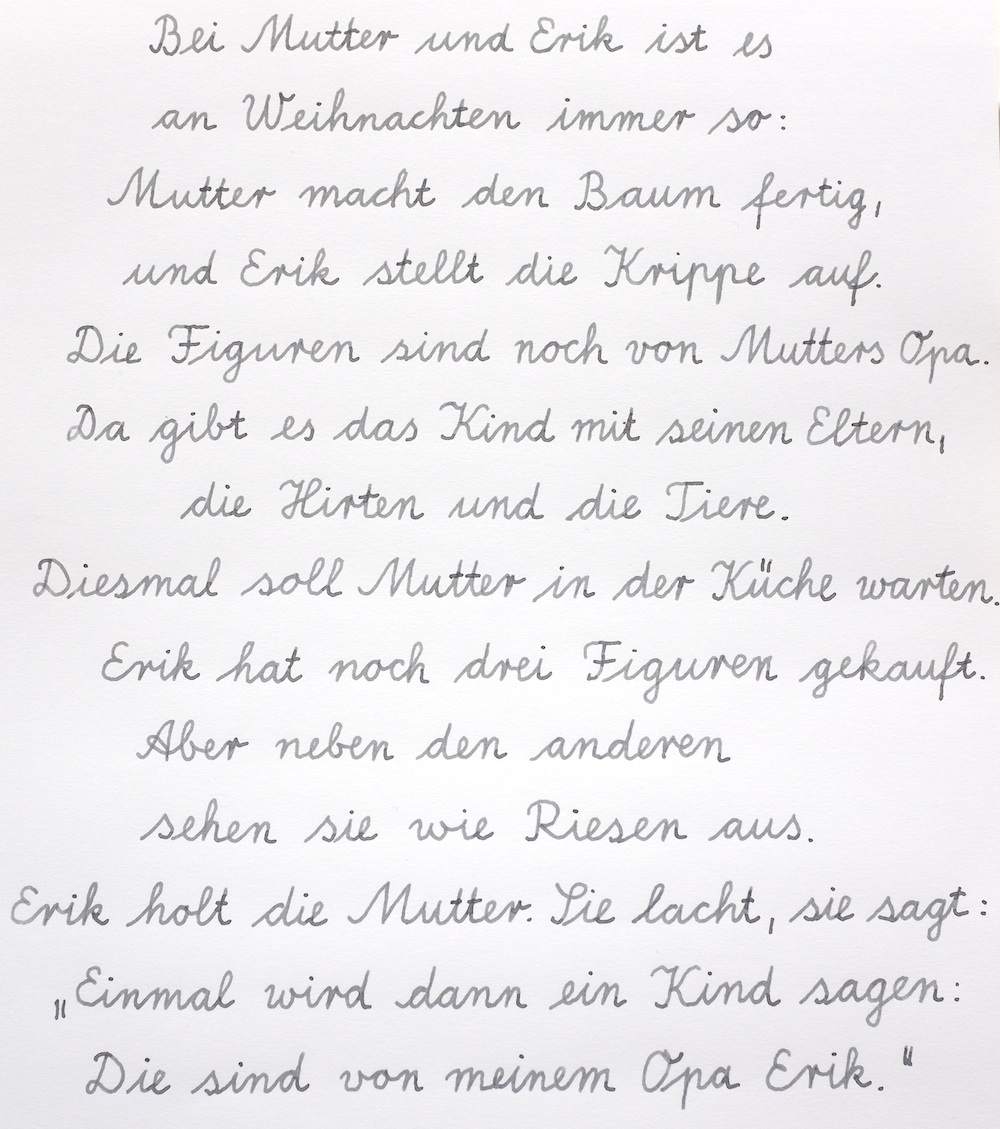 Bei Mutter und Erik ist es
an Weihnachten immer so:
Mutter macht den Baum fertig,
und Erik stellt die Krippe auf.
Die Figuren sind noch von Mutters Opa.
Da gibt es das Kind mit seinen Eltern,
die Hirten und die Tiere.
Diesmal soll Mutter in der Küche warten.
Erik hat noch drei Figuren gekauft.
Aber neben den anderen
sehen sie wie Riesen aus.
Erik holt die Mutter. Sie lacht, sie sagt:
„Einmal wird dann ein Kind sagen:
Die sind von meinem Opa Erik.“